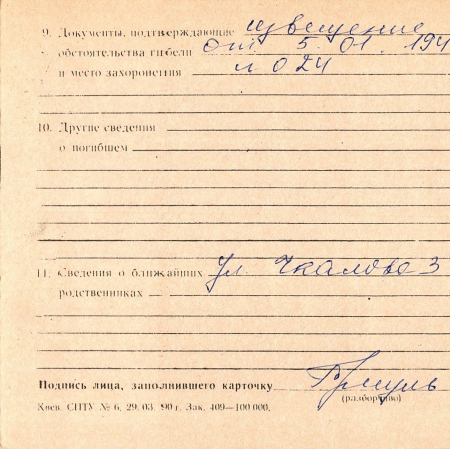 9. Документы, подтверждающие извещение
обстоятельства гибели от 5.01.194
и место захоронения н 024
10. Другие сведения
о погибшем
11. Сведения о ближайших ул. Чкалова 3
родственниках
Подпись лица, заполнившего карточку
(разборчиво)
Киев. СПТУ № 6, 29. 03. 90 г. Зак. 409—100.000.